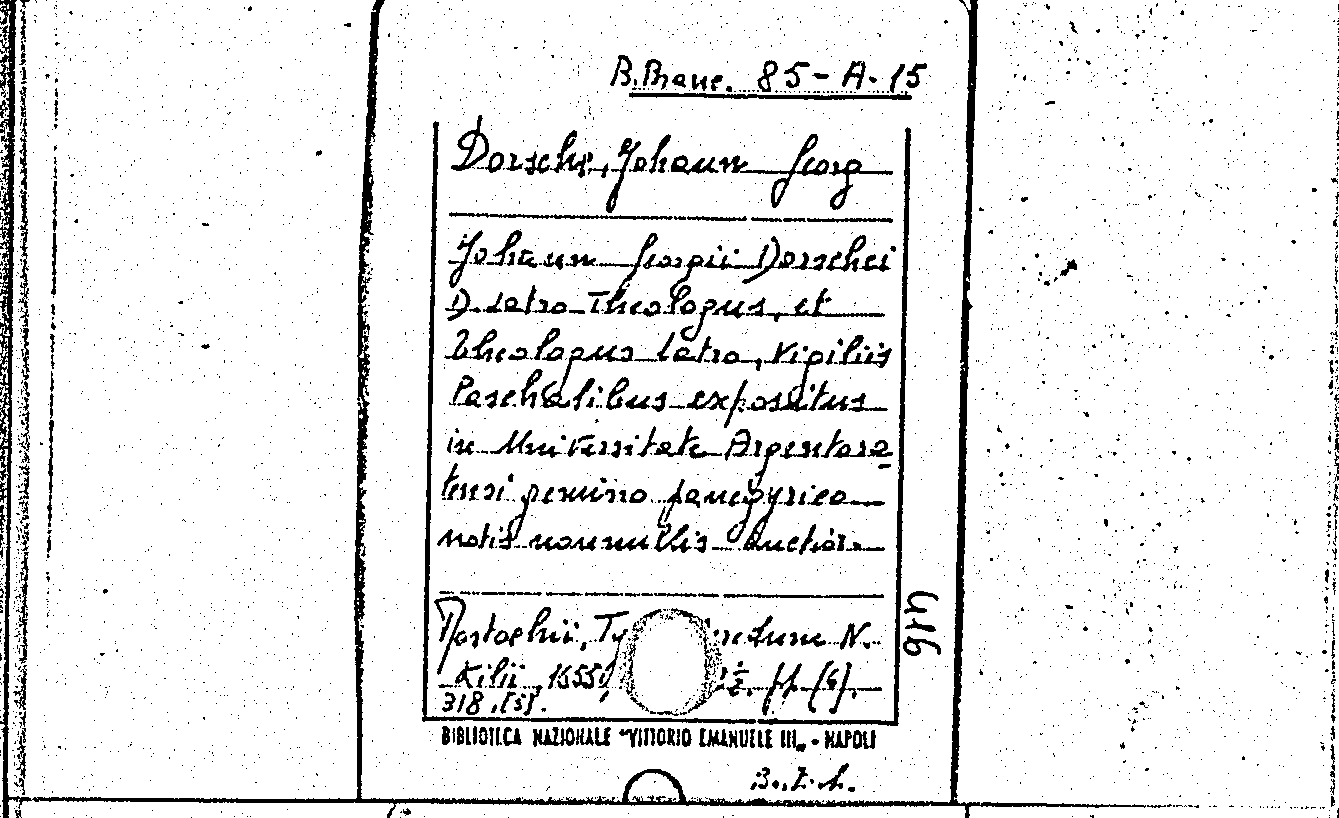 B. Branc. 85-A-15
Dorsche, Johann Georg
Johann Georgii Dorschei
D. Latro Theologus, et
Theologus latro, Vigiliis
Paschalibus expositus
in Universitate Argentora
tensi gemino panegyrico
notis nonnullis auctior.
Rostochii, N.
Kilii, 1655, pp. [6],
318, [5].
BIBLIOTECA NAZIONALE "VITTORIO EMANUELE III„ - NAPOLI